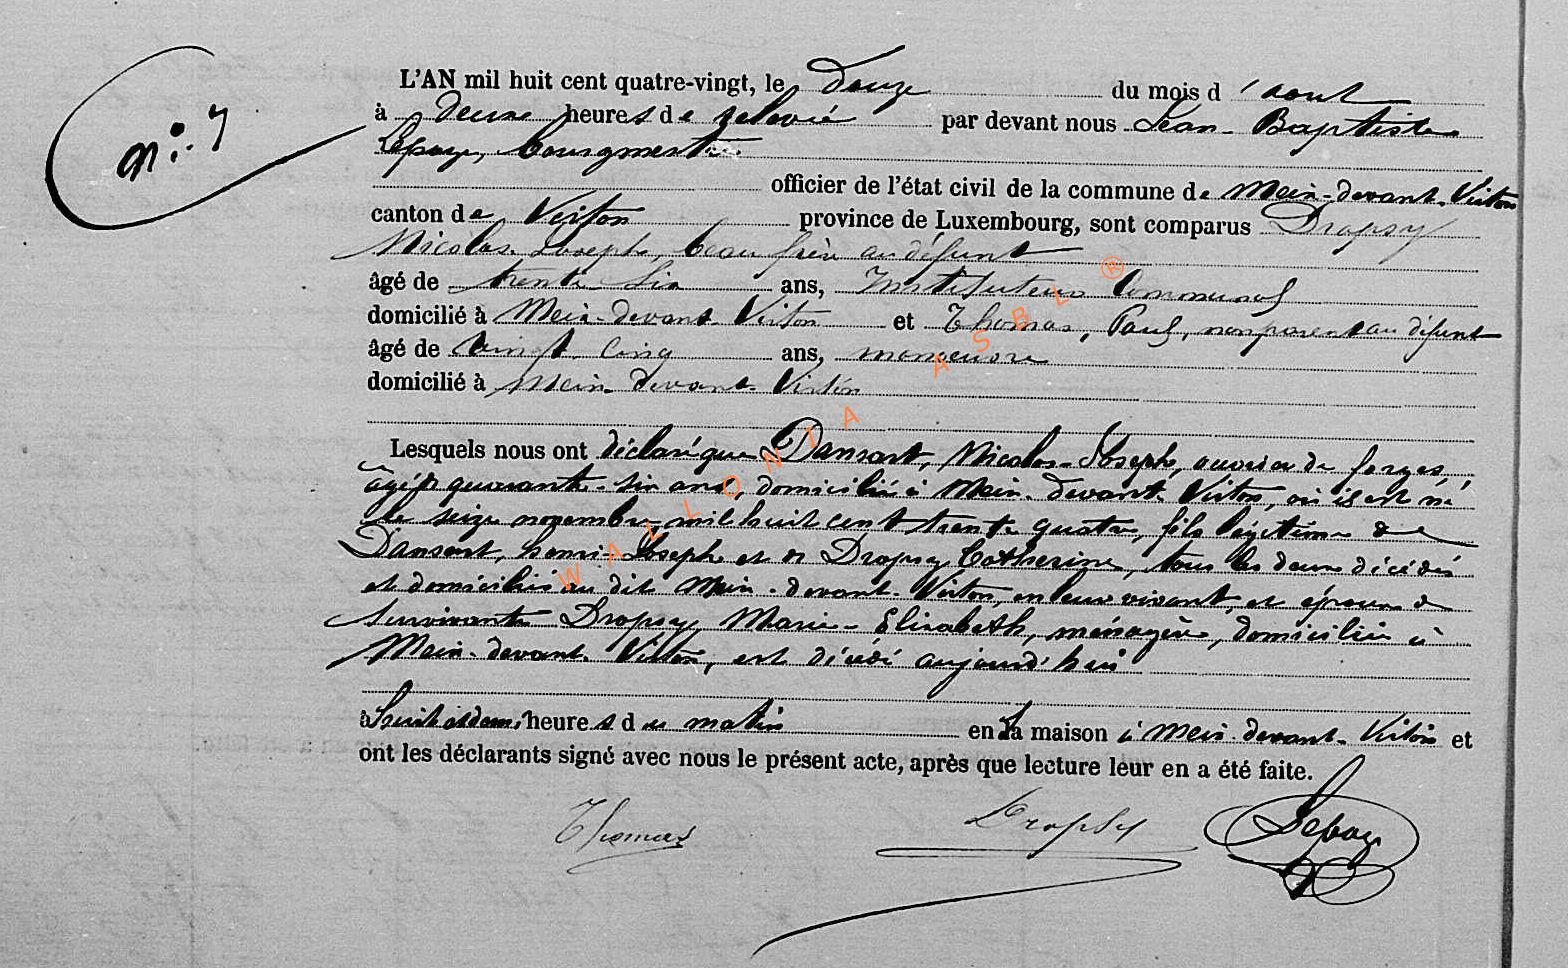 N°: 7
L'AN mil huit cent quatre-vingt, le Douze du mois d'aout
à Deux heures de relevée par devant nous Jean-Baptiste
Lepage, bourgmestre
officier de l'état civil de la commune de Meix-devant-Virton
canton de Virton province de Luxembourg, sont comparus Dropsy
Nicolas-Joseph, beau frère au défunt
âgé de trente-six ans, Instituteur Communal
domicilié à Meix-devant-Virton et Thomas, Paul, non parent au défunt
âgé de vingt-cinq ans, manoeuvre
domicilié à Meix-devant-Virton
Lesquels nous ont déclaré que Dansart, Nicolas-Joseph, ouvrier de forges,
âgé de quarante-six ans, domicilié à Meix-devant-Virton, où il est né
le seize novembre mil huit cent trente quatre, fils légitime de
Dansart, henri-Joseph et de Dropsy Catherine, tous les deux décédés
et domiciliés au dit Meix-devant-Virton, en leur vivant, et époux de
survivante Dropsy, Marie-Elisabeth, ménagère, domiciliée à
Meix-devant-Virton, est décédé aujourd'hui
à huit et demi heures du matin en la maison à Meix-devant-Virton et
ont les déclarants signé avec nous le présent acte, après que lecture leur en a été faite.
Thomas Dropsy Lepage
WALLONIA ASBL ®